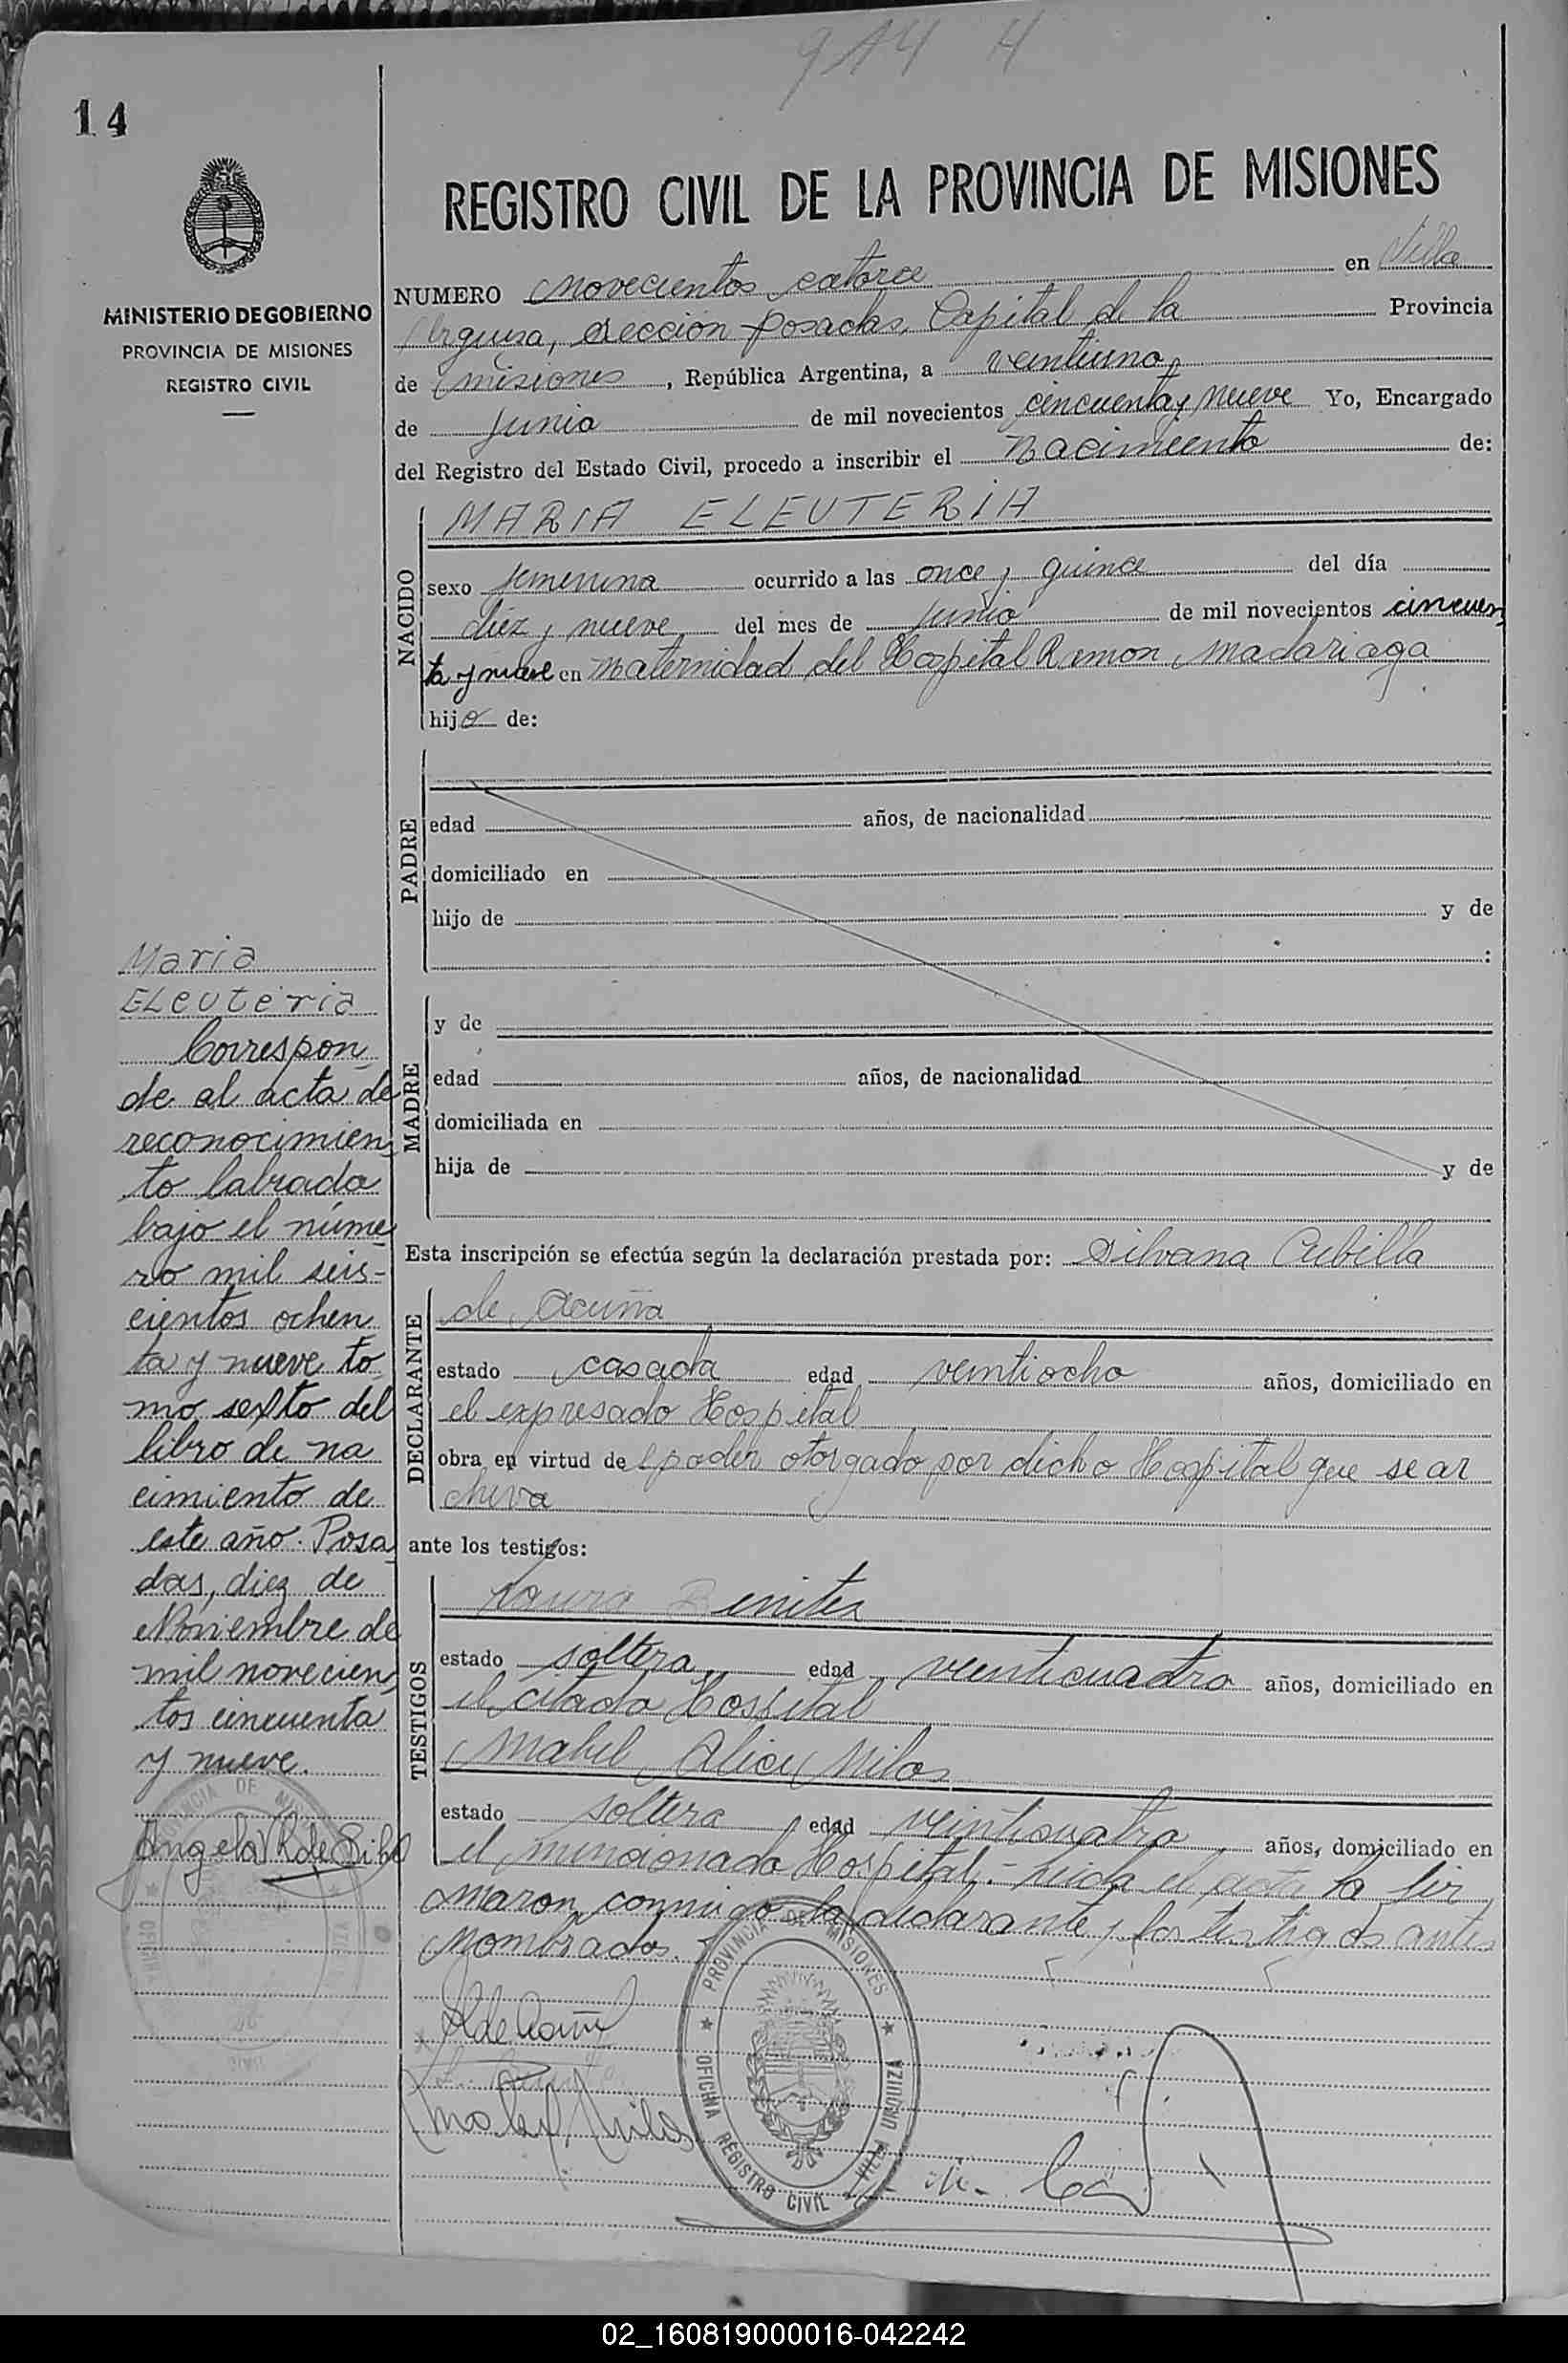 914 H
14
REGISTRO CIVIL DE LA PROVINCIA DE MISIONES
MINISTERIO DE GOBIERNO
PROVINCIA DE MISIONES
REGISTRO CIVIL
NUMERO novecientos catorce en Villa
Urquiza, sección Posadas, Capital de la Provincia
de Misiones, República Argentina, a veintiuno
de Junio de mil novecientos cincuenta y nueve Yo, Encargado
del Registro del Estado Civil, procedo a inscribir el Nacimiento de:
NACIDO
MARIA ELEUTERIA
sexo femenina ocurrido a las once y quince del día
diez y nueve del mes de Junio de mil novecientos cincuen
ta y nueve en Maternidad del Hospital Ramon Madariaga
hijo de:
PADRE
edad años, de nacionalidad
domiciliado en
hijo de y de
:
MADRE
y de
edad años, de nacionalidad
domiciliada en
hija de y de
Esta inscripción se efectúa según la declaración prestada por: Silvana Cubilla
DECLARANTE
de Acuña
estado casada edad veintiocho años, domiciliado en
el expresado Hospital
obra en virtud del poder otorgado por dicho Hospital que se ar
chiva
ante los testigos:
TESTIGOS
Laura Benitez
estado soltera edad veinticuatro años, domiciliado en
el citado Hospital
Mabel Alice Milos
estado soltera edad veinticuatro años, domiciliado en
el mencionado Hospital.- Leida el acta la fir
maron conmigo la declarante y los testigos antes
nombrados.
Maria
Eleuteria
Correspon
de al acta de
reconocimien
to labrada
bajo el núme
ro mil seis-
cientos ochen
ta y nueve to
mo sexto del
libro de na
cimiento de
este año. Posa
das, diez de
Noviembre de
mil novecien
tos cincuenta
y nueve.
S. de Acuña
Mabel Milos
PROVINCIA DE MISIONES
OFICINA REGISTRO CIVIL VILLA URQUIZA
02_160819000016-042242